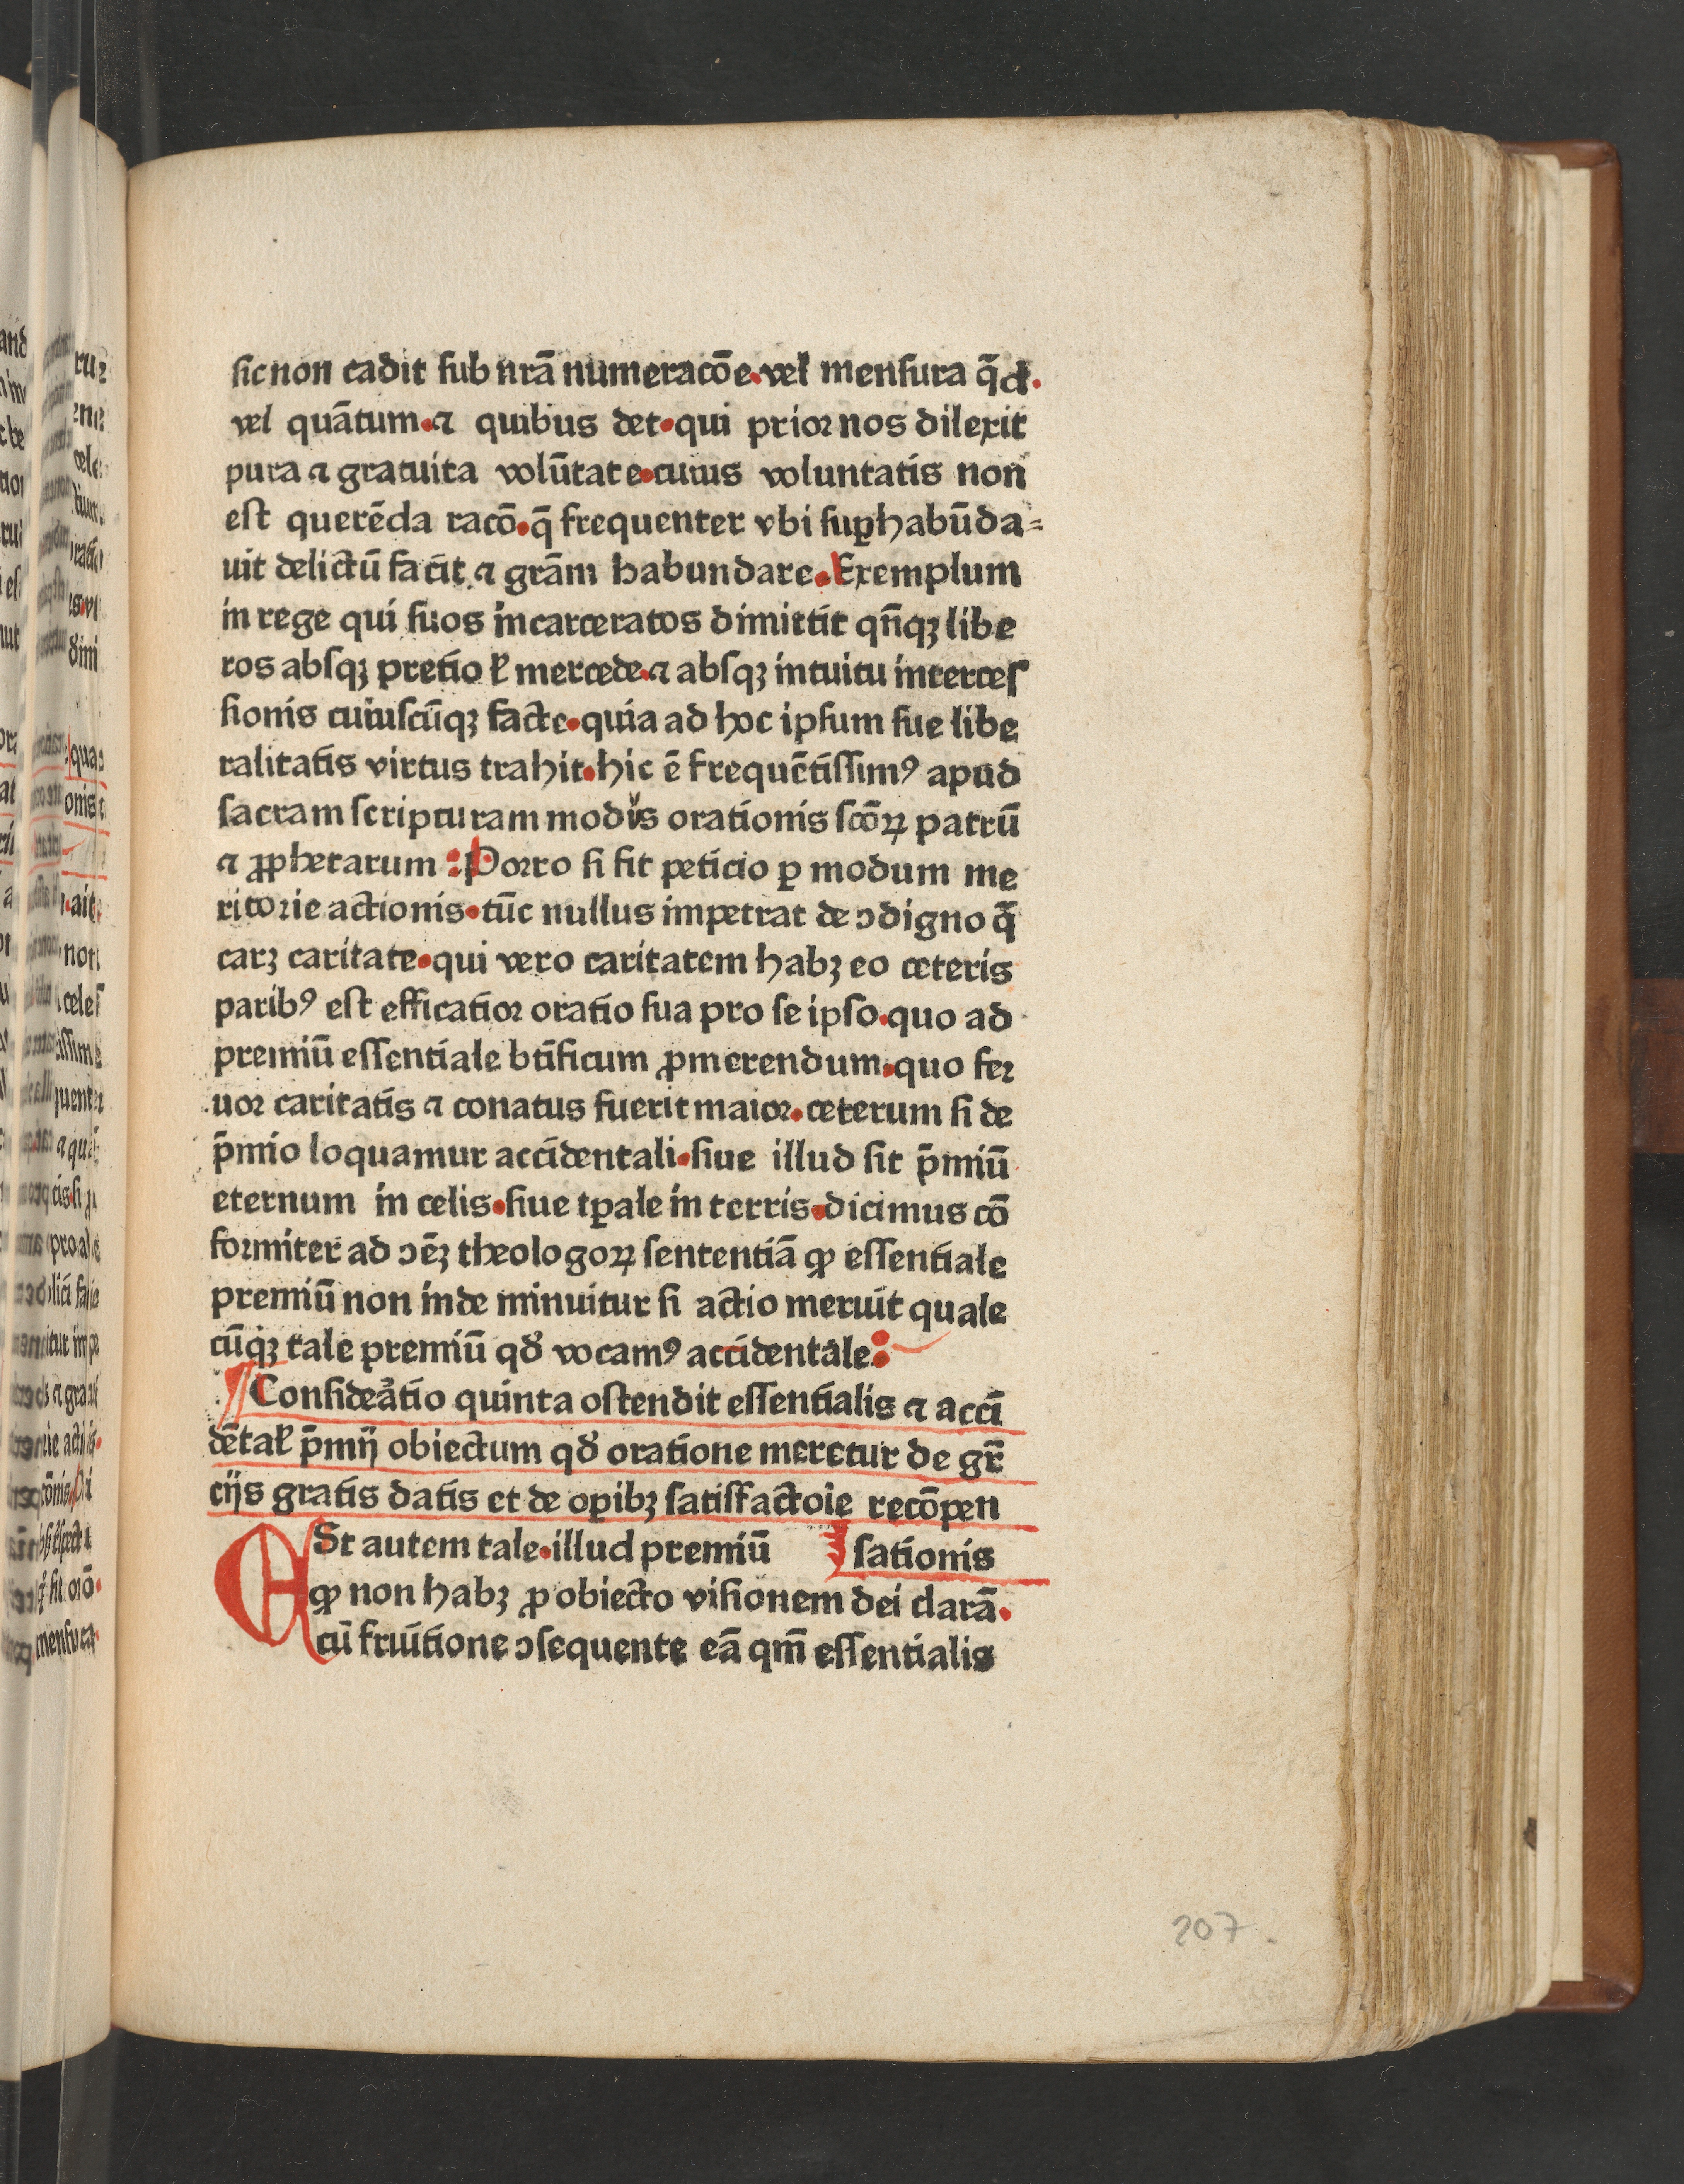 sic non cadit sub nr̄ā numeracōe. vel̵ mensura q̄d.
vel quātum. ⁊ quibus det. qui prior nos dilexit
pura ⁊ gratuita volūtate. cuius voluntatis non
est querēda racō. q̄ frequenter vbi suꝑhabūda⸗
uit delictū facit ⁊ grām habundare. Exemplum
in rege qui suos incarceratos dimittit qn̄qꝫ libe
ros absqꝫ pretio ł mercede. ⁊ absqꝫ intuitu interces
sionis cuiuscūqꝫ facte. quia ad hoc ipsum sue libe
ralitatis virtus trahit. hic ē frequētissimꝰ apud
sacram scripturam modus orationis scōꝝ patrū
⁊ ꝓphetarum : Porro si fit peticio ꝑ modum me
ritorie actionis. tūc nullus impetrat de ↄdigno q̄
carꝫ caritate. qui vero caritatem habꝫ eo ceteris
paribꝰ est efficatior oratio sua pro se ipso. quo ad
premiū essentiale btīficum ꝓmerendum. quo fer
uor caritatis ⁊ conatus fuerit maior. ceterum si de
p̄mio loquamur accidentali. siue illud sit p̄miū
eternum in celis. siue tꝑale in terris. dicimus cō
formiter ad ↄēꝫ theologoꝝ sententiā ꝙ essentiale
premiū non inde minuitur si actio meruit quale
cūqꝫ tale premiū qđ vocamꝰ accidentale :
¶ Consideātio quinta ostendit essentialis ⁊ acci
dētal̵ p̄mij obiectum qđ oratione meretur de gr̄
cijs gratis datis et de oꝑibꝫ satisfactoie recōpen
ESt autem tale. illud premiū sationis
ꝙ non habꝫ ꝓ obiecto visionem dei clarā.
cū fruitione ↄsequente eā qm̄ essentialis
207